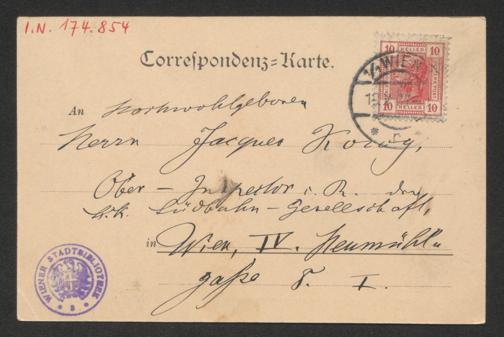 I.N. 174.854
Correspondenz-Karte.
10 HELLER 10
1/1 WIEN
10 HELLER 10
An Hochwohlgeboren
Herrn Jacques
Ober-Inspektor i. R. der
k.k. Südbahn-Gesellschaft,
in Wien, IV. Neumühl-
gasse I.
WIENER STADTBIBLIOTHEK